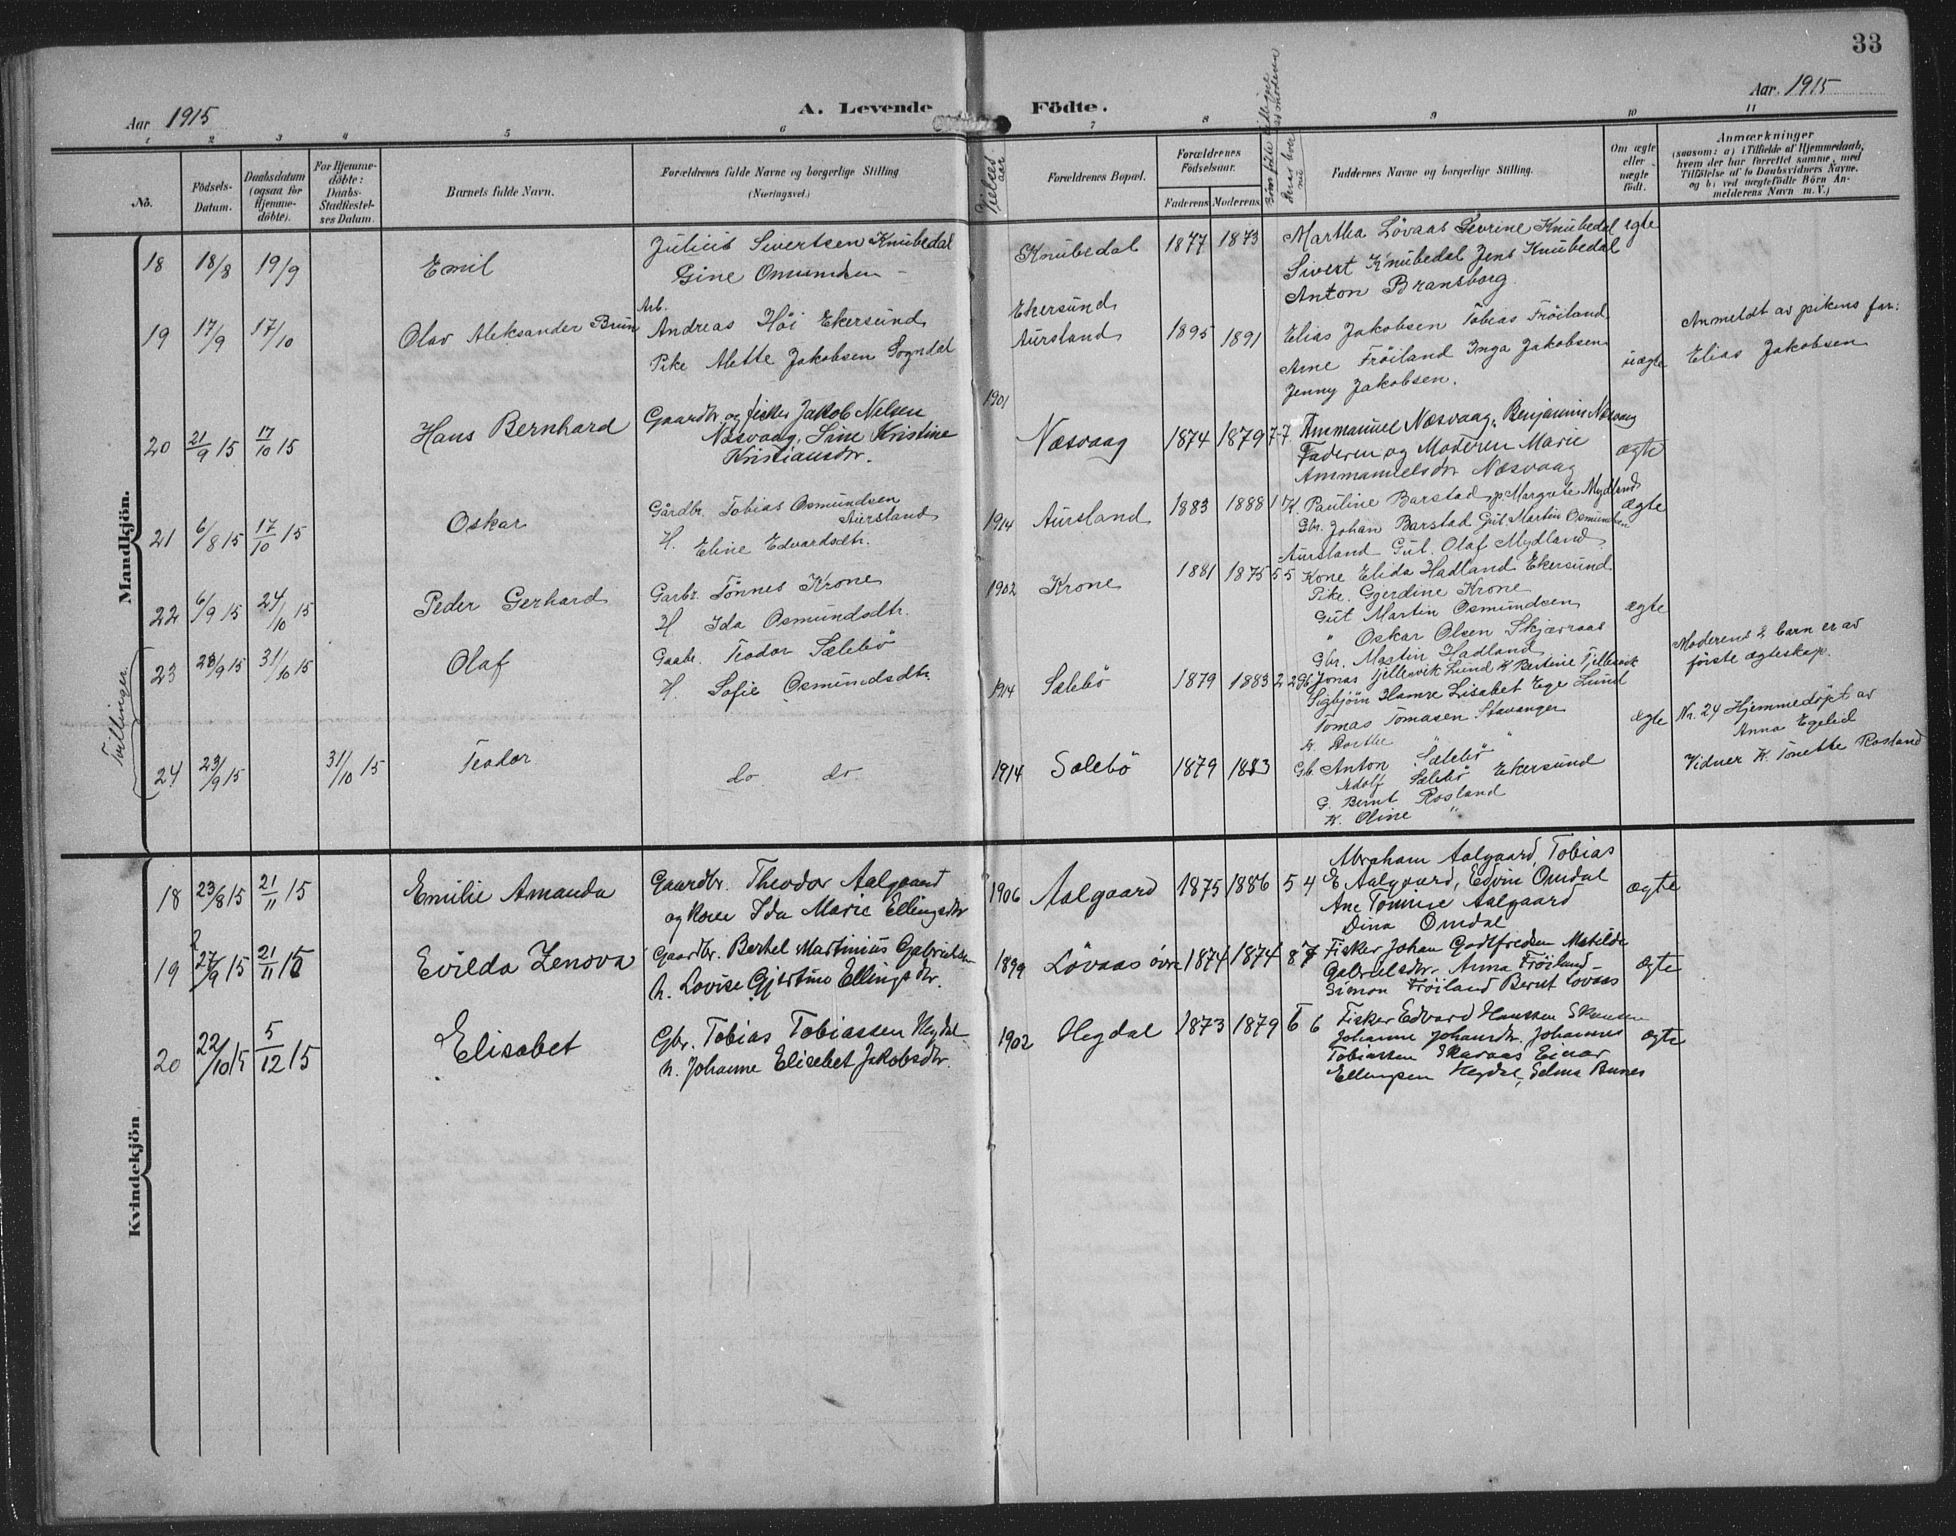 33
Aar 1915
A. Levende Födte.
Aar 1915
1
2
3
4
5
6
7
8
9
10
11
No.
Födsels-
Datum.
Daabsdatum
(ogsaa for
Hjemme-
döbte).
For Hjemme-
döbte:
Daabs-
Stadfæstel-
ses Datum.
Barnets fulde Navn.
Forældrenes fulde Navne og borgerlige Stilling
(Næringsvei.)
Vielses
aar
Forældrenes Bopæl.
Forældrenes
Födselsaar.
Faderens
Moderens
Faddernes Navne og borgerlige Stilling.
Om ægte
eller
uægte
födt.
Anmærkninger
(saasom: a) i Tilfælde af Hjemmedaab,
hvem der har forrettet samme, med
Tilföielse af to Daabsvidners Navne.
og b) ved uægtefödte Börn An-
melderens Navn m. V.)
Mandkjön.
18 18/8 19/9 Emil
Julius Sivertsen Knubedal
Gine Omundsen
Knubedal 1877 1873
Martha Lövaas Sevrine Knubedal
Sivert Knubedal Jens Knubedal
Anton Bransborg.
egte
19 17/9 17/10 Olav Aleksander Brun
Arb.
Andreas Höi Ekersund
Pike Alette Jakobsen Sogndal
Ekersund
Aursland 1895 1891
Elias Jakobsen Tobias Fröiland
Arne Fröiland Inga Jakobsen
Jenny Jakobsen.
uægte
Anmeldt av pikens far:
Elias Jakobsen
20 21/9 15 17/10 15 Hans Bernhard
Gaardbr og fisker Jakob Nelsen
Næsvaag, Sine Kristine
Kristiansdtr.
1901 Næsvaag 1874 1879 7 7
Ammanuel Næsvaag, Benjamin Næsvaag
Faderen og Moderen Marie
Ammanuelsdtr Næsvaag
ægte
21 6/8 15 17/10 15 Oskar
Gårdbr. Tobias Osmundsen
Aursland
H. Eline Edvardsdtr.
1914 Aursland 1883 1888 1 1
K. Pauline Barstad p Margrete Mydland
Gbr. Johan Barstad Gut Martin Osmundsen
Aursland Gut. Olaf Mydland
ægte
22 6/9 15 24/10 15 Peder Gerhard
Garbr. Tönnes Krone
H Ida Osmundsdtr.
1902 Krone 1881 1875 5 5
Kone Elida Hadland Ekersund
Pike. Gjerdine Krone
Gut Martin Osmundsen
" Oskar Olsen Skjævraas
Gbr. Martin Hadland
ægte
Tvillinger
23 23/9 15 31/10 15 Olaf
Gaabr. Teodor Sælebö
H. Sofie Osmundsdtr.
1914 Sælebö 1879 1883 2 2
Gb Jonas Tjellesvik Lund K Partine Tjellesvik
Sigbjörn Hamre Lisabet Ege Lund
Tomas Tomasen Stavanger
K. Dorthe " "
ægte
Moderens 2 barn er av
förste ægteskap.
24 23/9 15 31/10 15 Teodor
do do
1914 Sælebö 1879 1883
Gb. Anton Sælebö
Adolf Sælebö Ekersund
G. Bernt Rosland
K. Oline "
Nr. 24 Hjemmedöpt av
Anna Egelid
Vidner K. Tonette Rosland
Kvindekjön
18 23/8 15 21/11 15 Emilie Amanda
Gaardbr. Theodor Aalgaard
og kone Ida Marie Ellingsdtr
1906 Aalgaard 1875 1886 5 4
Abraham Aalgaard, Tobias
E Aalgaard, Edvin Omdal
Ane Tomine Aalgaard
Dina Omdal
ægte
19 27/9 15 21/11 15 Evilda Zenova
Gaardbr. Bertel Martinius Gabrielsen
h. Lovise Gjertine Ellingsdtr.
1899 Lövaas övre 1874 1874 8 7
Fisker Johan Godtfredsen Matilde
Gabrielsdtr. Anna Fröiland
Simon Fröiland Bernt Lövaas
ægte
20 22/10 15 5/12 15 Elisabet
Gbr. Tobias Tobiassen Hegdal
h. Johanne Elisebet Jakobsdtr.
1902 Hegdal 1873 1879 6 6
Fisker Edvard Hansen Skaasen
Johanne Johansdtr. Johannes
Tobiassen Skaraas Einar
Ellingsen Hegdal, Selma Aunes
ægte